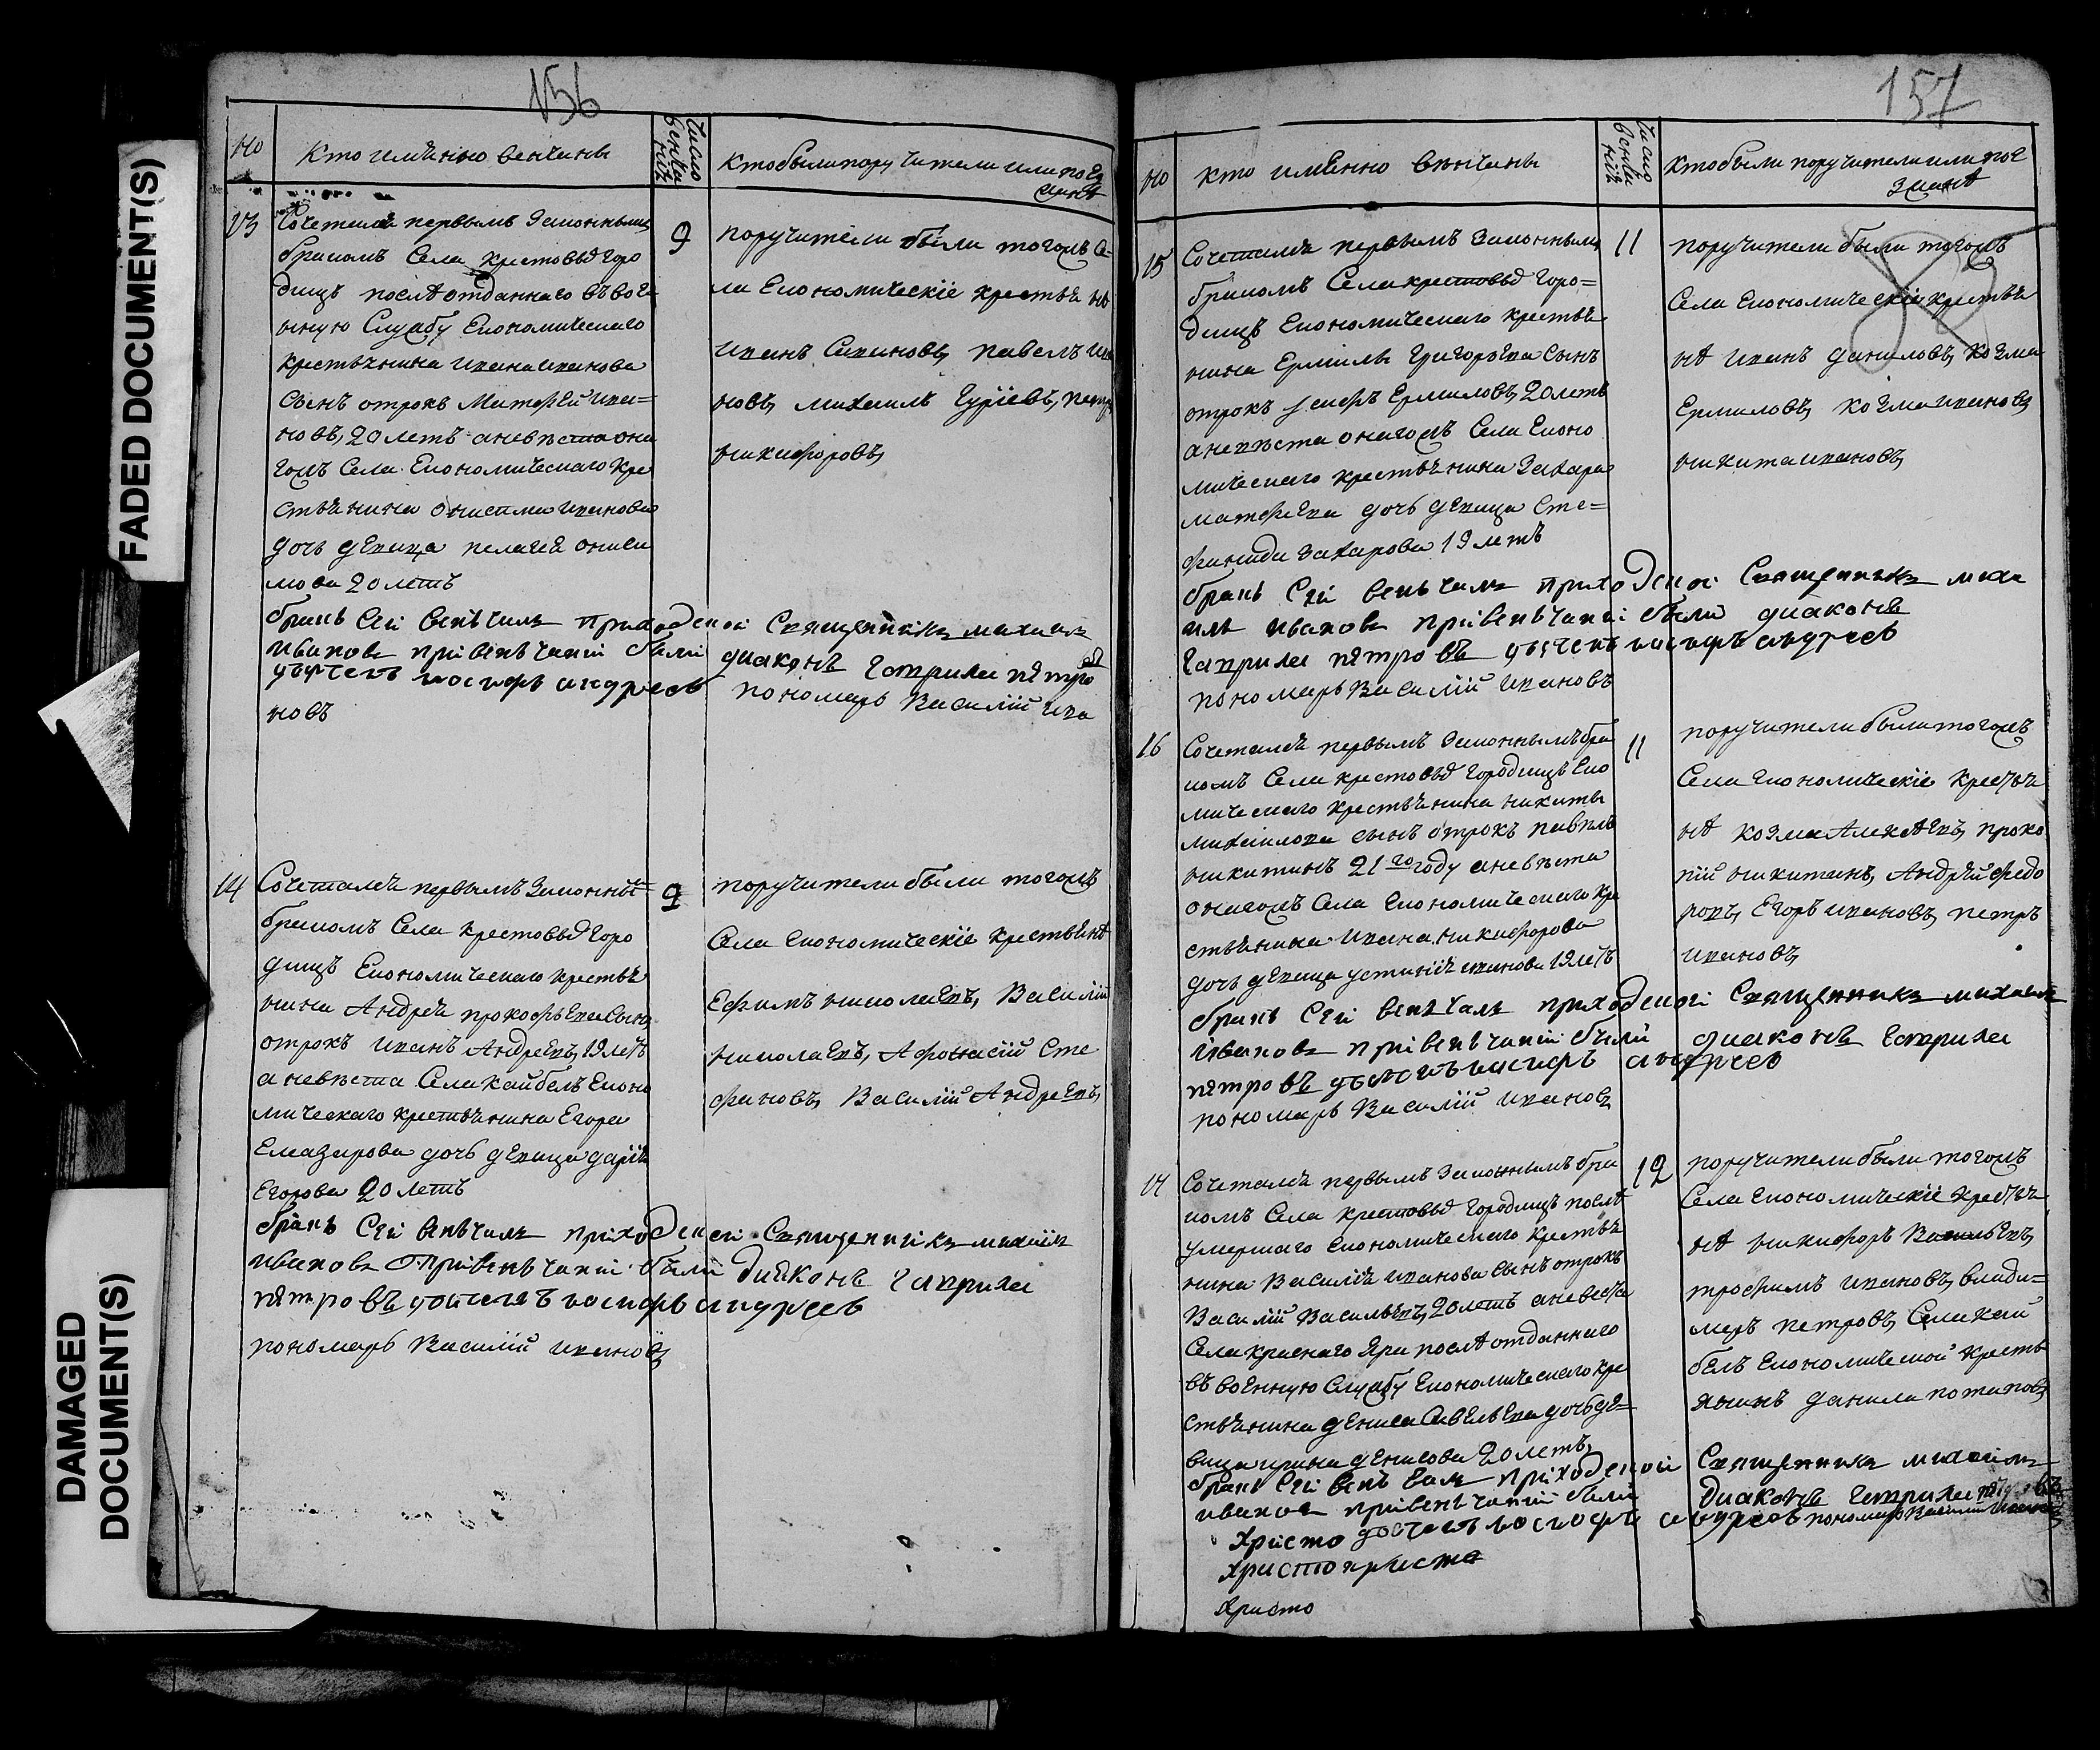 FADED DOCUMENT(S)
DAMAGED
DOCUMENT(S)
156
но
кто имѣнно венчаны
Число
венча
нiй
кто были поручители или поез
жанѣ
13
Сочетался первымъ законнымъ
бракомъ Села крестовыхъ горо
дищъ послѣ отданнаго въ вое
нную Службу Економическаго
крестьянина ивана иванова
Сынъ отрокъ Матфей ива=
новъ, 20 летъ а невѣста она
гожъ Села Економическаго кре
стьянина онисима иванова
дочь девица пелагея ониси
мова 20 летъ
9
поручители были тогожъ Се=
ла Економическiе крестьянѣ
иванъ Савиновъ, павелъ ива
новъ, михаилъ Гурiевъ, петръ
никифоровъ
бракъ Сей венчалъ приходской Священникъ михаилъ
ивановъ при венчании были диаконъ Гаврила петровъ
дьячекъ иосифъ андреевъ пономарь Василiй ива
новъ
14
Сочетался первымъ законны=
бракомъ Села крестовыхъ горо
дищъ Економическаго крестья
нина Андрея прокофьева сынъ
отрокъ иванъ Андреевъ, 19 летъ
а невѣста Села кайбелъ Еконо
мическаго крестьянина Егора
Елазарова дочь девица дарiя
Егорова 20 летъ
9
поручители были тогожъ
Села економическiе крестьянѣ
Ефимъ николаевъ, Василiй
николаевъ, Афонасiй Сте
фановъ, Василiй Андреевъ,
бракъ Сей венчалъ приходской Священникъ михаилъ
ивановъ при венчании были диаконъ Гаврила
петровъ дьячекъ иосифъ андреевъ
пономарь Василiй ивановъ
157
но
кто имѣнно вѣнчаны
Число
венча
нiй
кто были поручители или пое
зжанѣ
15
Сочетался первымъ законнымъ
бракомъ Села крестовыхъ горо=
дищъ Економическаго крестья
нина Ермилы григорьева Сынъ
отрокъ Ермиловъ, 20 летъ
а невѣста онагожъ Села Еконо
мическаго крестьянина Захара
матфеева дочь девица Сте=
фанида Захарова 19 летъ
11
поручители были тогожъ
Села Економическiе крестья
нѣ иванъ даниловъ, козма
Ермиловъ, козма ивановъ
никита ивановъ,
бракъ Сей венчалъ приходской Священникъ миха
илъ ивановъ при венчании были диаконъ
Гаврила петровъ дьячекъ иосифъ андреевъ
пономарь Василiй ивановъ
16
Сочетался первымъ законнымъ бра
комъ Села крестовыхъ городищъ Еко
мическаго крестьянина никиты
михаилова сынъ отрокъ павелъ
никитинъ 21 го году а невѣста
онагожъ Села Економическаго кре
стьянина ивана никифорова
дочь девица устинiя иванова 19 летъ
11
поручители были тогожъ
Села економическiе крестья
нѣ козма Алексѣевъ, проко
пiй никитинъ, Андрей федо
ровъ, Егоръ ивановъ, петръ
ивановъ,
бракъ Сей венчалъ приходской Священникъ михаилъ
ивановъ при венчании были диаконъ Гаврила
петровъ дьячекъ иосифъ андреевъ
пономарь Василiй ивановъ
17
Сочетался первымъ законнымъ бра
комъ Села крестовыхъ городищъ послѣ
умершаго Економическаго крестья
нина Василiя иванова сынъ отрокъ
Василiй Васильевъ, 20 летъ а невеста
Села краснаго Яра послѣ отданнаго
въ военную Службу Економическаго кре
стьянина дениса Савельева дочь де=
вица ирина денисова 20 летъ
12
поручители были тогожъ
Села економическiе крестья
нѣ никифоръ Васильевъ,
трофимъ ивановъ, влади=
меръ петровъ, Села кай
белъ Економической кресть
янинъ данила потаповъ,
бракъ Сей венчалъ приходской Священникъ михаилъ
ивановъ при венчании были диаконъ Гаврила петровъ
Христо дьячекъ иосифъ андреевъ пономарь Василiй ивановъ
Христо христа
Христо